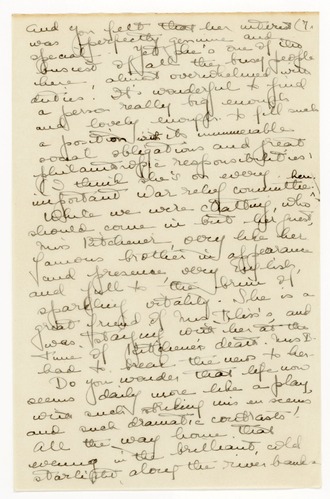 And you felt that her interest (7.
was perfectly genuine and
special. Yet she's one of the
busiest of all the busy people
here, almost overwhelmed with
duties. It's wonderful to find
a person really big enough
and lovely enough to fill such
a position with its innumerable
social obligations and great
philanthropic responsibilities!
I think she's on every
important War relief committee here.
While we were chatting, who
should come in but her guest,
Miss Kitchener, very like her
famous brother in appearance
and presence, very English,
and full to the brim of
sparkling vitality. She is a
great friend of Mrs. Bliss's, and
was staying with her at the
time of Kitchener's death. Mrs. B.
had to break the news to her.
Do you wonder that life now
seems daily more like a play,
with such striking mis en scenes
and such dramatic contrasts!
All the way home that
evening in the brilliant, cold
starlight, along the river bank